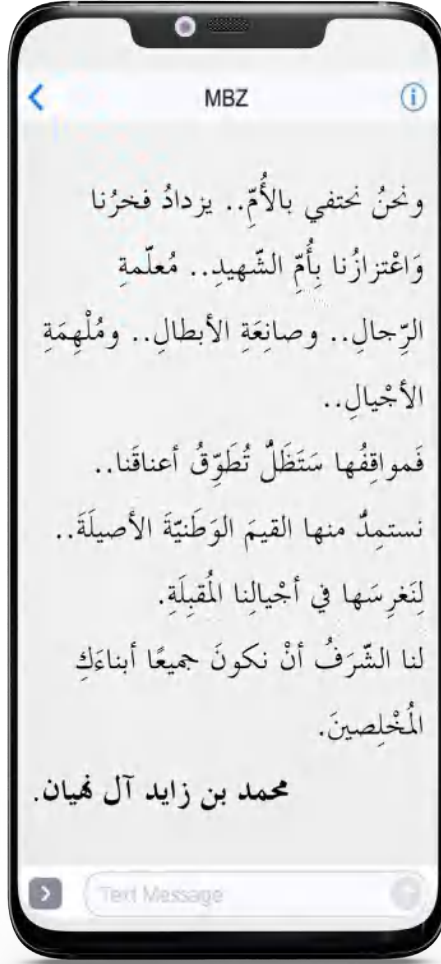 MBZ
ونحنُ نحتفي بالأُمِّ.. يزدادُ فخرُنا
وَاعْتزازُنا بِأُمِّ الشّهيدِ.. مُعلّمةِ
الرِّجالِ.. وصانِعَةِ الأبطالِ.. ومُلْهِمَةِ
الأجْيالِ..
فَمواقِفُها سَتَظَلُّ تُطَوِّقُ أعناقَنا..
نستمِدُّ منها القيمَ الوَطَنيّةَ الأصيلَةَ..
لِنَغرِسَها في أجْيالِنا المُقبِلَةِ.
لنا الشّرَفُ أنْ نكونَ جميعًا أبناءَكِ
المُخْلِصينَ.
محمد بن زايد آل نهيان.
Text Message